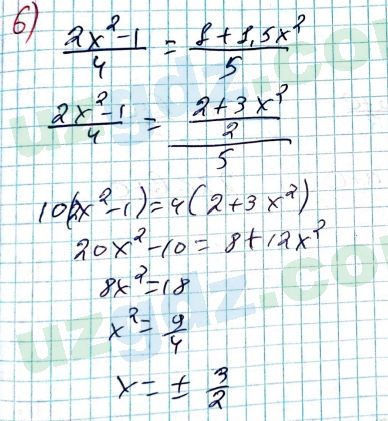 б)
(2x²-1)/4 = (1+1,5x²)/5
(2x²-1)/4 = ((2+3x²)/2)/5
10(2x²-1)=4(2+3x²)
20x²-10=8+12x²
8x²=18
x²=9/4
x=±3/2
uzgdz.com